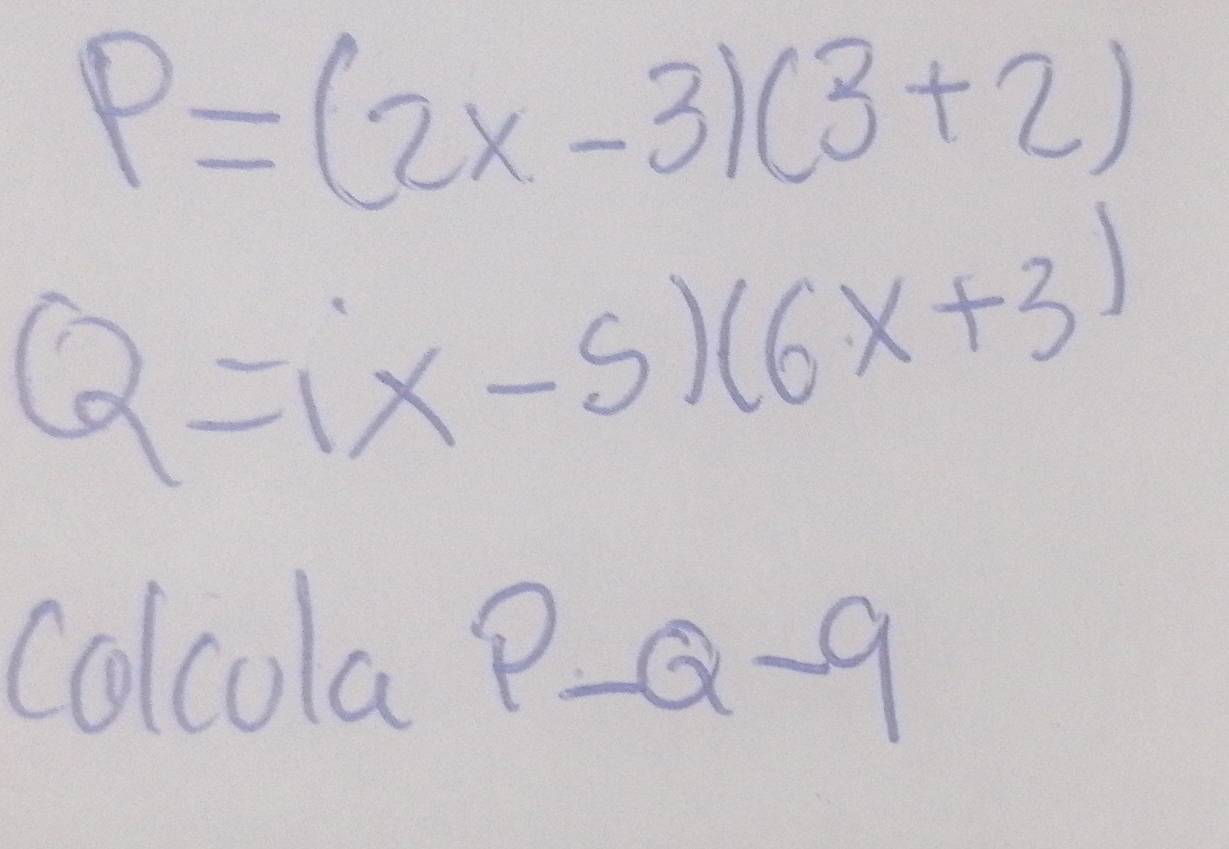 P=(2x-3)(3+2)
Q=ix-5)(6x+3)
Calcula P-Q-9